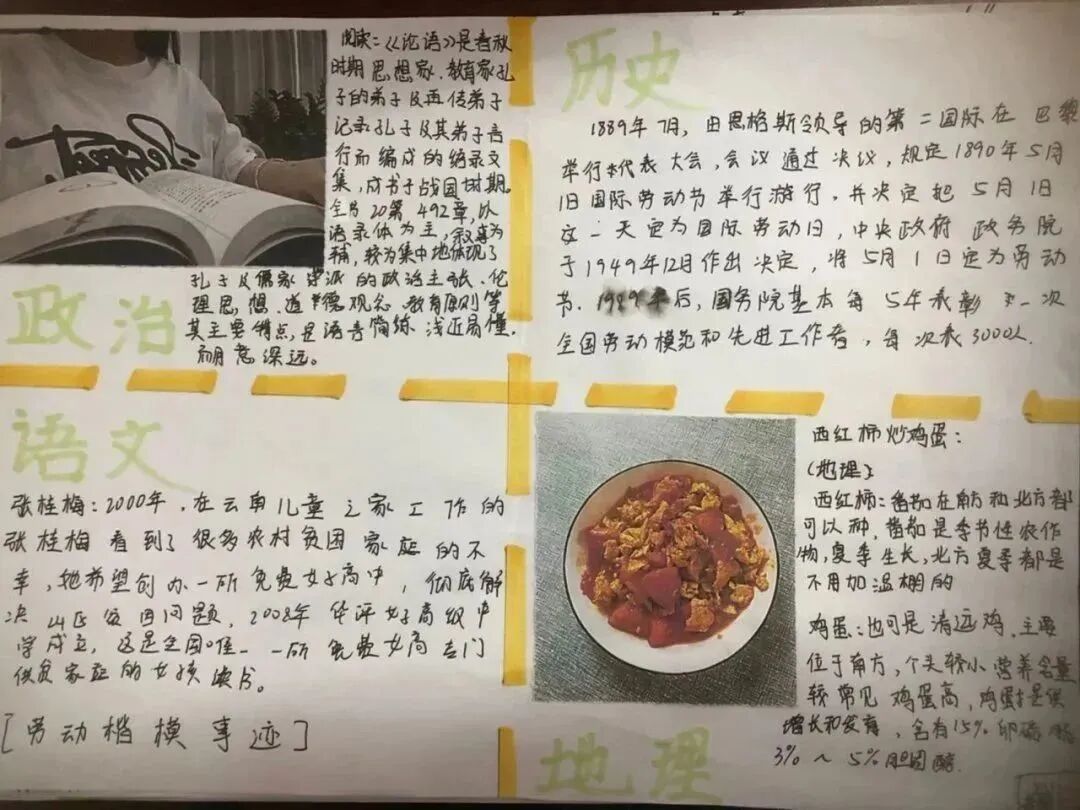 阅读:《论语》是春秋
时期思想家、教育家孔
子的弟子及再传弟子
记录孔子及其弟子言
行而编成的语录文
集,成书于战国时期。
全书20篇492章,以
语录体为主,叙事为
辅,较为集中地体现了
孔子及儒家学派的政治主张、伦
理思想、道德观念、教育原则等
其主要特点,是语言简练,浅近易懂,
用意深远。
政治
历史
1889年7月,由恩格斯领导的第二国际在巴黎
举行代表大会,会议通过决议,规定1890年5月
1日国际劳动节举行游行,并决定把5月1日
这一天定为国际劳动日,中央政府政务院
于1949年12月作出决定,将5月1日定为劳动
节.1989年后,国务院基本每5年表彰一次
全国劳动模范和先进工作者,每次表3000人.
语文
张桂梅:2000年,在云南儿童之家工作的
张桂梅看到了很多农村贫困家庭的不
幸,她希望创办一所免费女子高中,彻底解
决山区贫困问题,2008年华坪女子高级中
学成立,这是全国唯一一所免费女高专门
供贫家庭的女孩读书。
[劳动楷模事迹]
西红柿炒鸡蛋:
(地理)
西红柿:番茄在南方和北方都
可以种,番茄是季节性农作
物,夏季生长,北方夏季都是
不用加温棚的
鸡蛋:也可是清远鸡,主要
位于南方,个头较小营养含量
较常见鸡蛋高,鸡蛋是供
增长和发育,含有15%卵磷脂
3%~5%胆固醇.
地理